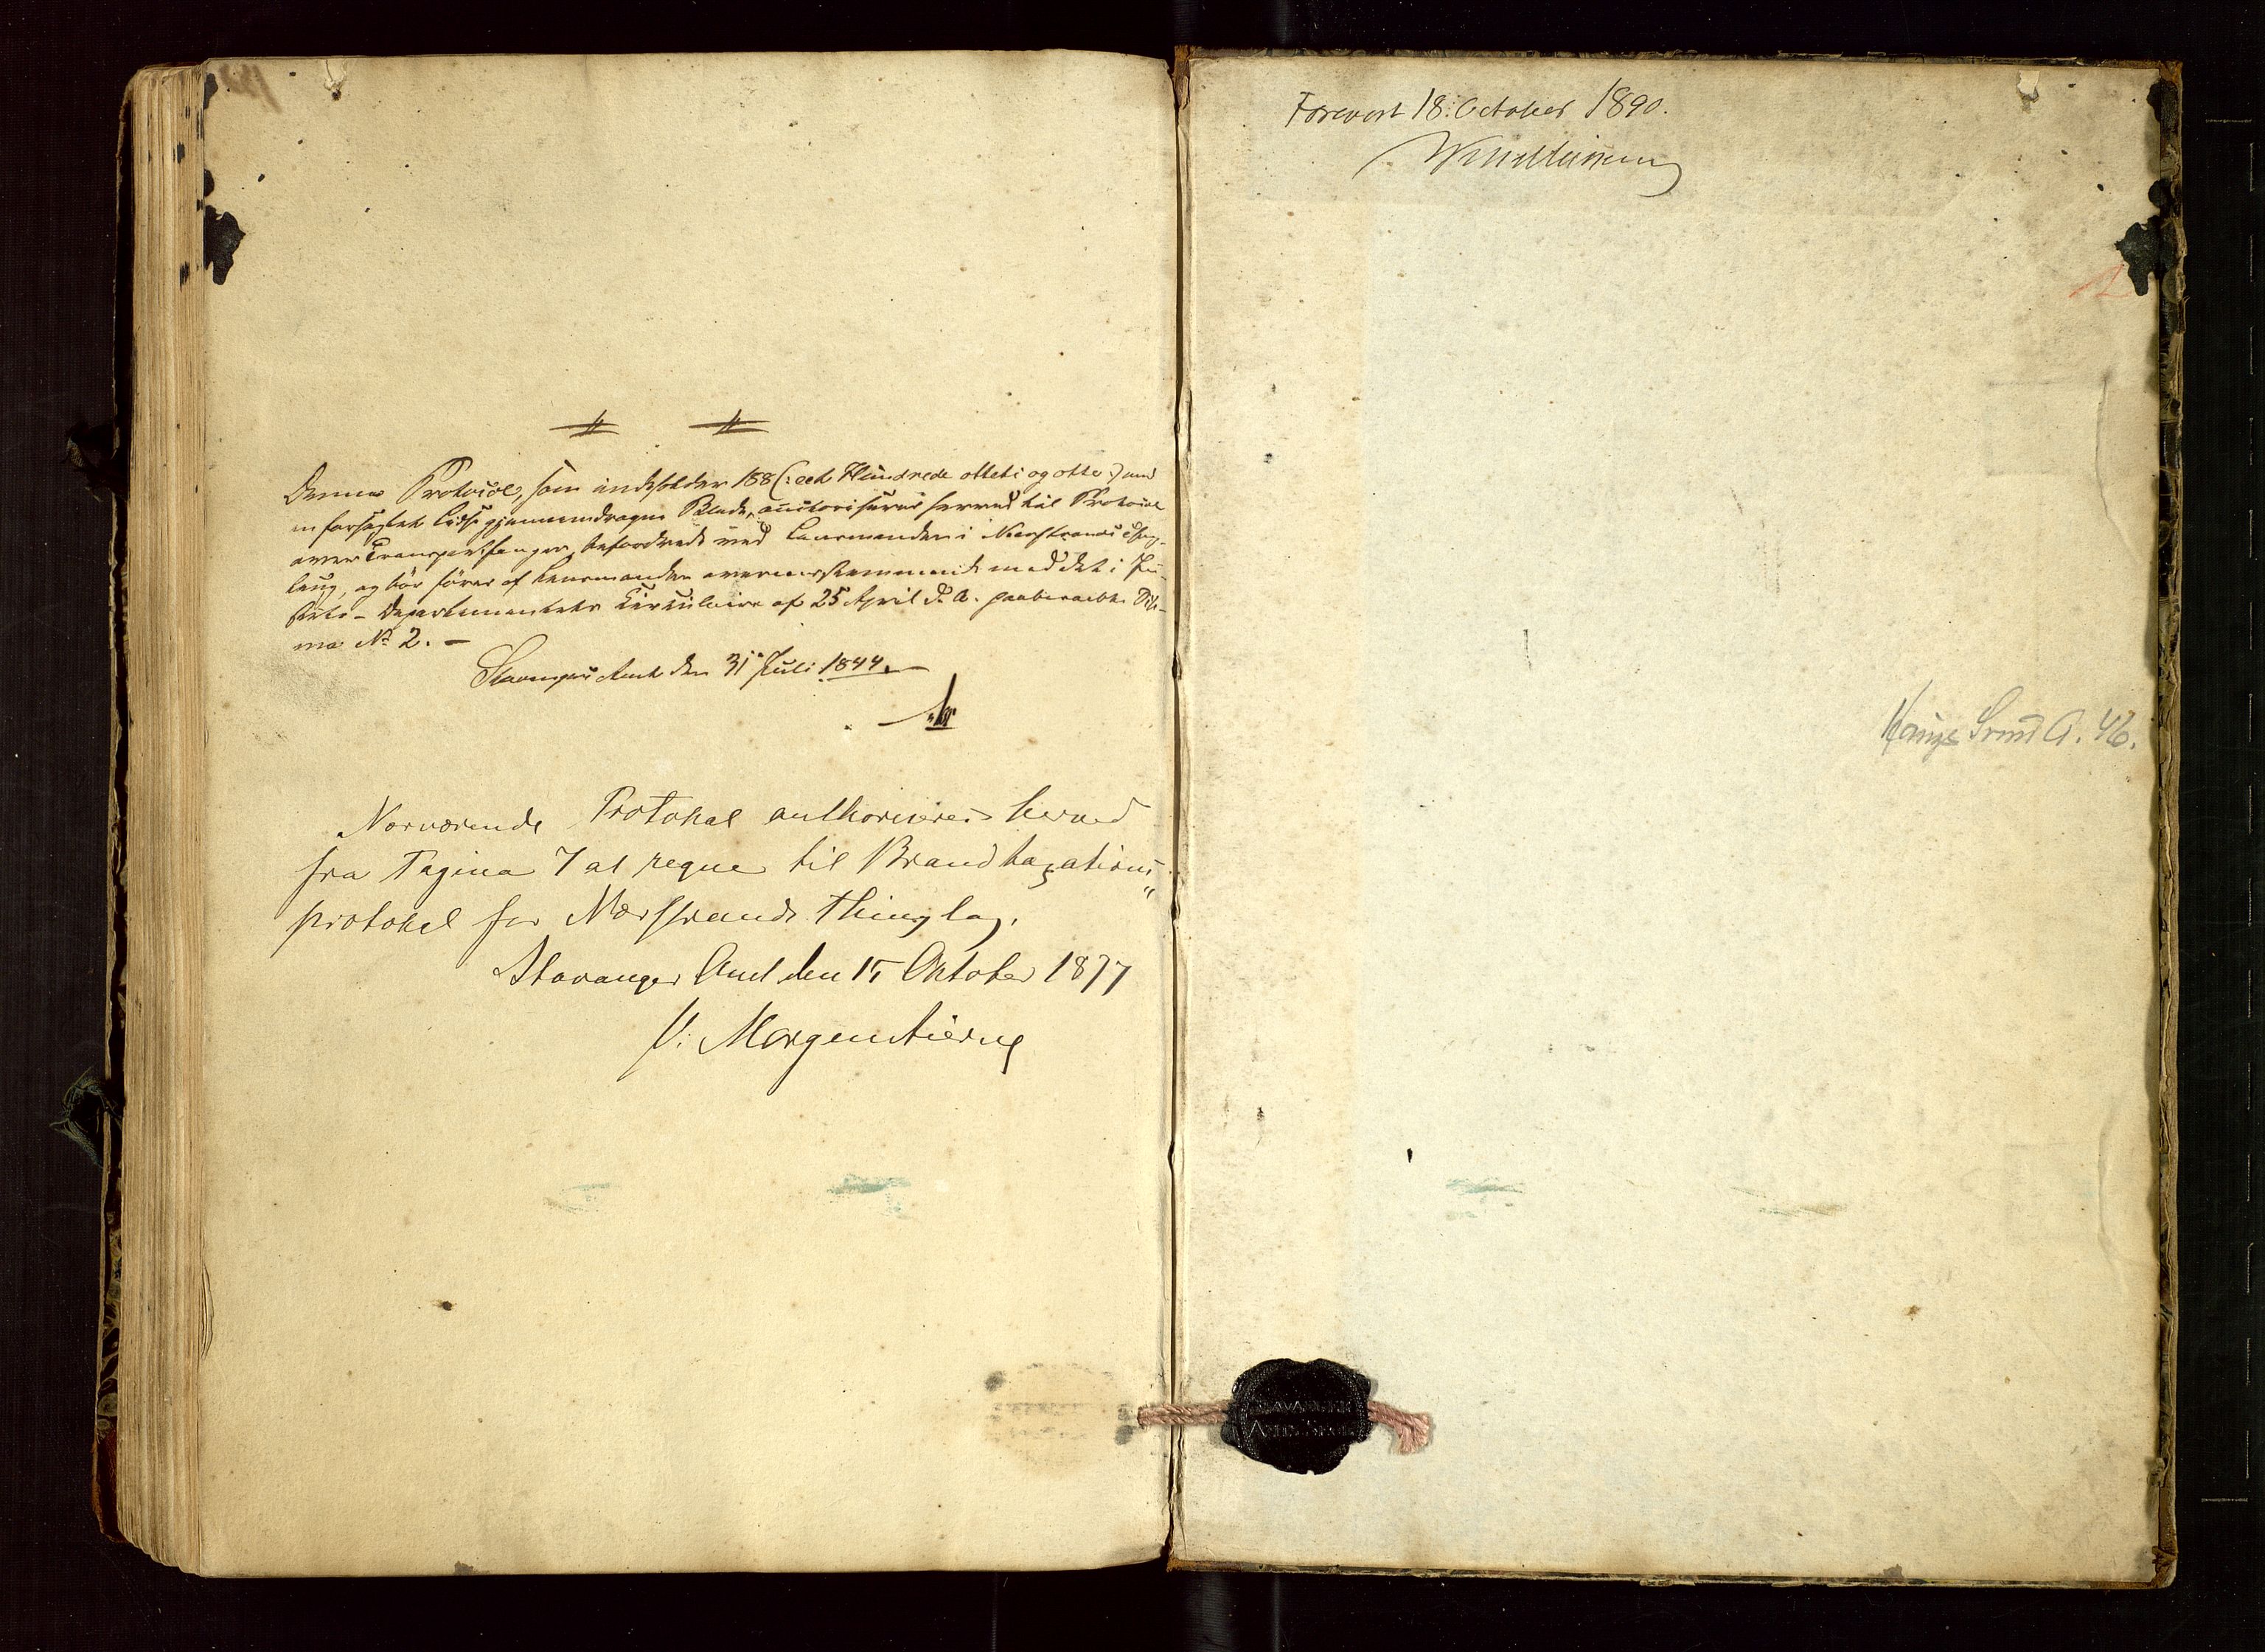 Denne Protocol, som indeholder 188 (: eet Hundrede otteti og otte :) med
en forseglet Lidse gjennemdragne Blade, auctoriseres herved til Protocol
over Transportfanger, befordrede ved Lensmanden i Nærstrands Thing-
laug, og bør føres af Lensmanden overensstemmende med det i Ju-
stits-Departementets Circulaire af 25 April d. A. paaberaabte Sche-
ma No 2. -
Stavanger Amt den 31 Juli 1844. -
Nærværende Protokol authoriseres herved
fra Pagina 7 at regne til Brandtaxations
protokol for Nærstrands Thinglag.
Stavanger Amt den 15 Oktober 1877
V. Morgenstierne
Forevist 18. October 1890.
STAVANGER
AMTS SEGL
A. 46.